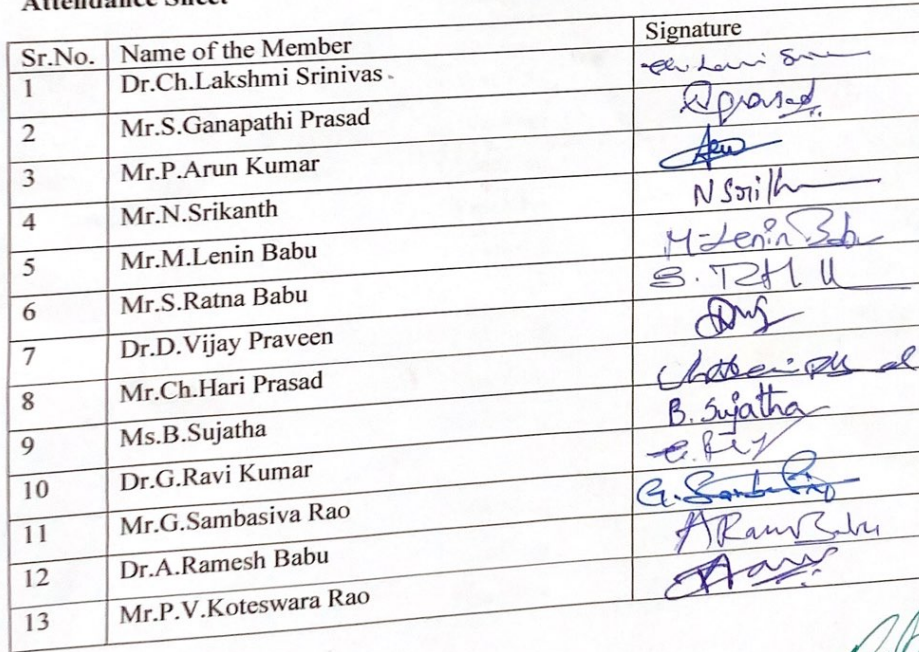 Attendance Sheet
Sr.No. Name of the Member Signature
1 Dr.Ch.Lakshmi Srinivas
2 Mr.S.Ganapathi Prasad prasad
3 Mr.P.Arun Kumar
4 Mr.N.Srikanth
5 Mr.M.Lenin Babu M-Lenin Babu
6 Mr.S.Ratna Babu
7 Dr.D.Vijay Praveen
8 Mr.Ch.Hari Prasad
9 Ms.B.Sujatha B. Sujatha
10 Dr.G.Ravi Kumar
11 Mr.G.Sambasiva Rao
12 Dr.A.Ramesh Babu
13 Mr.P.V.Koteswara Rao